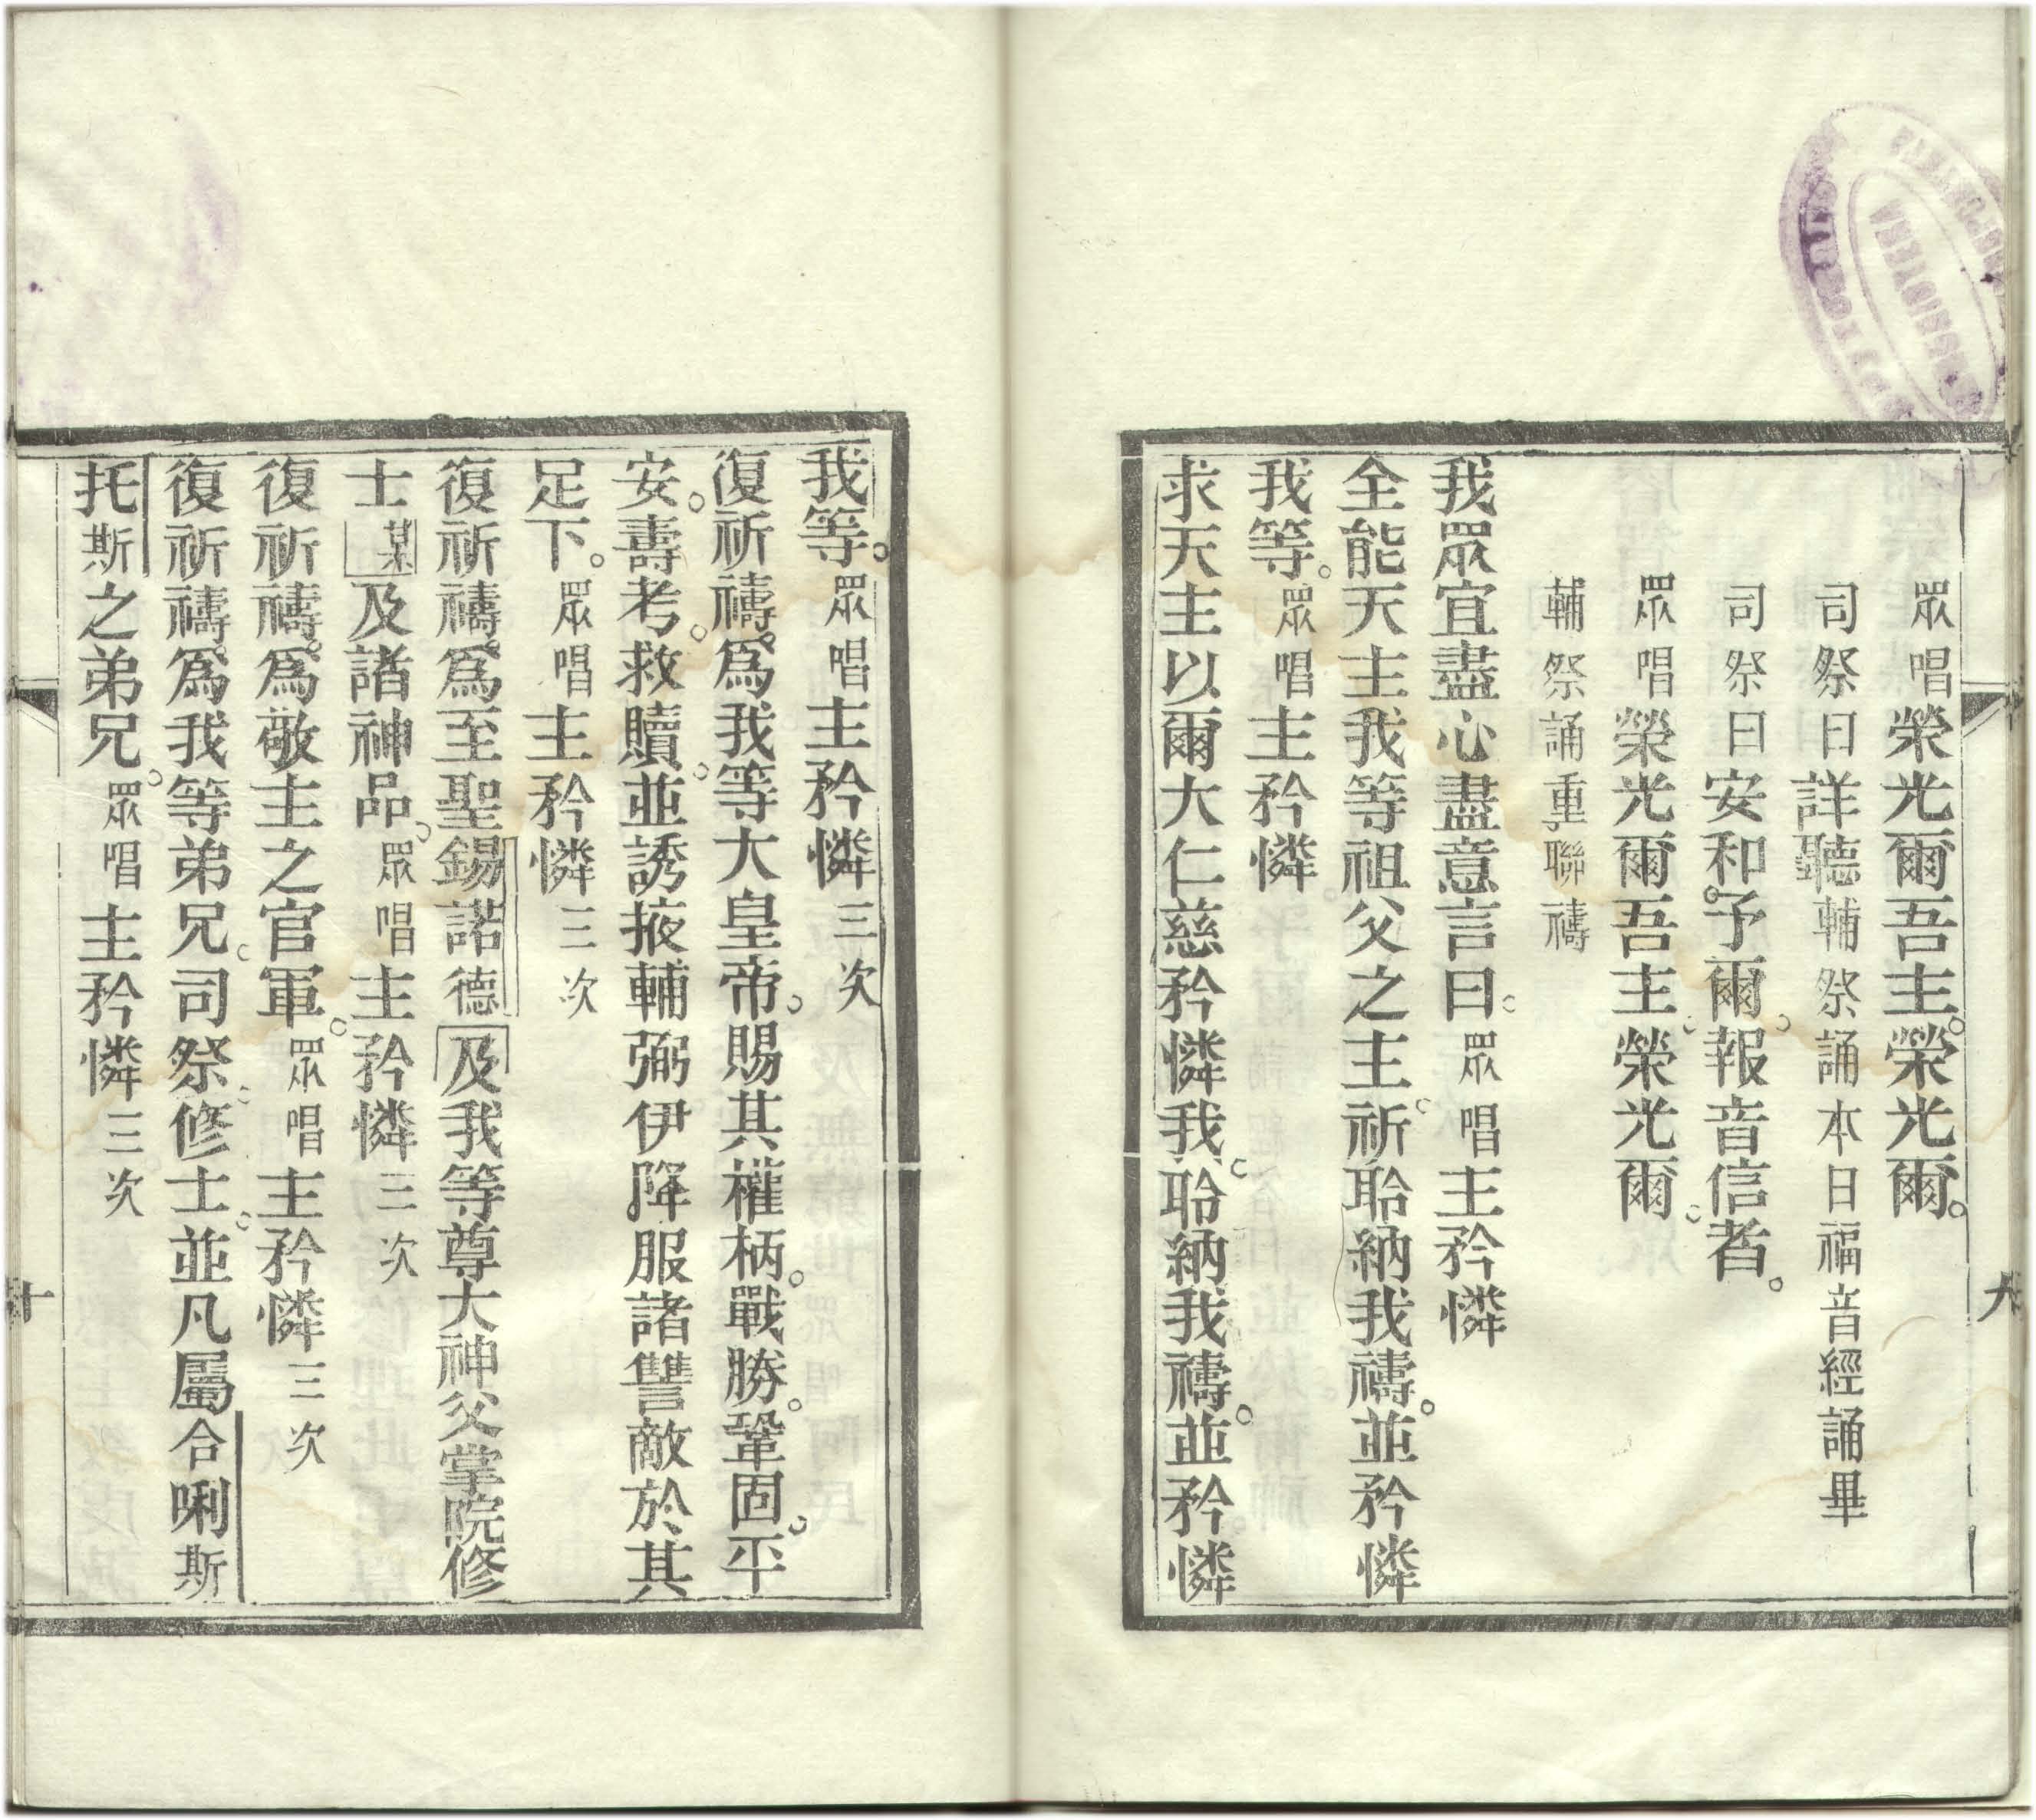 眾唱榮光爾吾主。榮光爾。
司祭曰詳聽輔祭誦本日福音經誦畢
司祭曰安和。予爾。報音信者。
眾唱榮光爾吾主。榮光爾。
輔祭誦重聯禱
我眾宜盡心盡意言曰。眾唱主矜憐
全能天主我等祖父之主。祈聆納我禱。並矜憐
我等。眾唱主矜憐。
求天主以爾大仁慈矜憐我。聆納我禱。並矜憐
九
我等。眾唱主矜憐三次
復祈禱。爲我等大皇帝。賜其權柄。戰勝。鞏固。平
安。壽考。救贖。並誘掖輔弼。伊降服諸讐敵於其
足下。眾唱主矜憐三次
復祈禱。爲至聖錫諾德及我等尊大神父掌院修
士某及諸神品。眾唱主矜憐三次
復祈禱。爲敬主之官軍。眾唱主矜憐三次
復祈禱。爲我等弟兄。司祭。修士。並凡屬合唎斯
托斯之弟兄。眾唱主矜憐三次
十